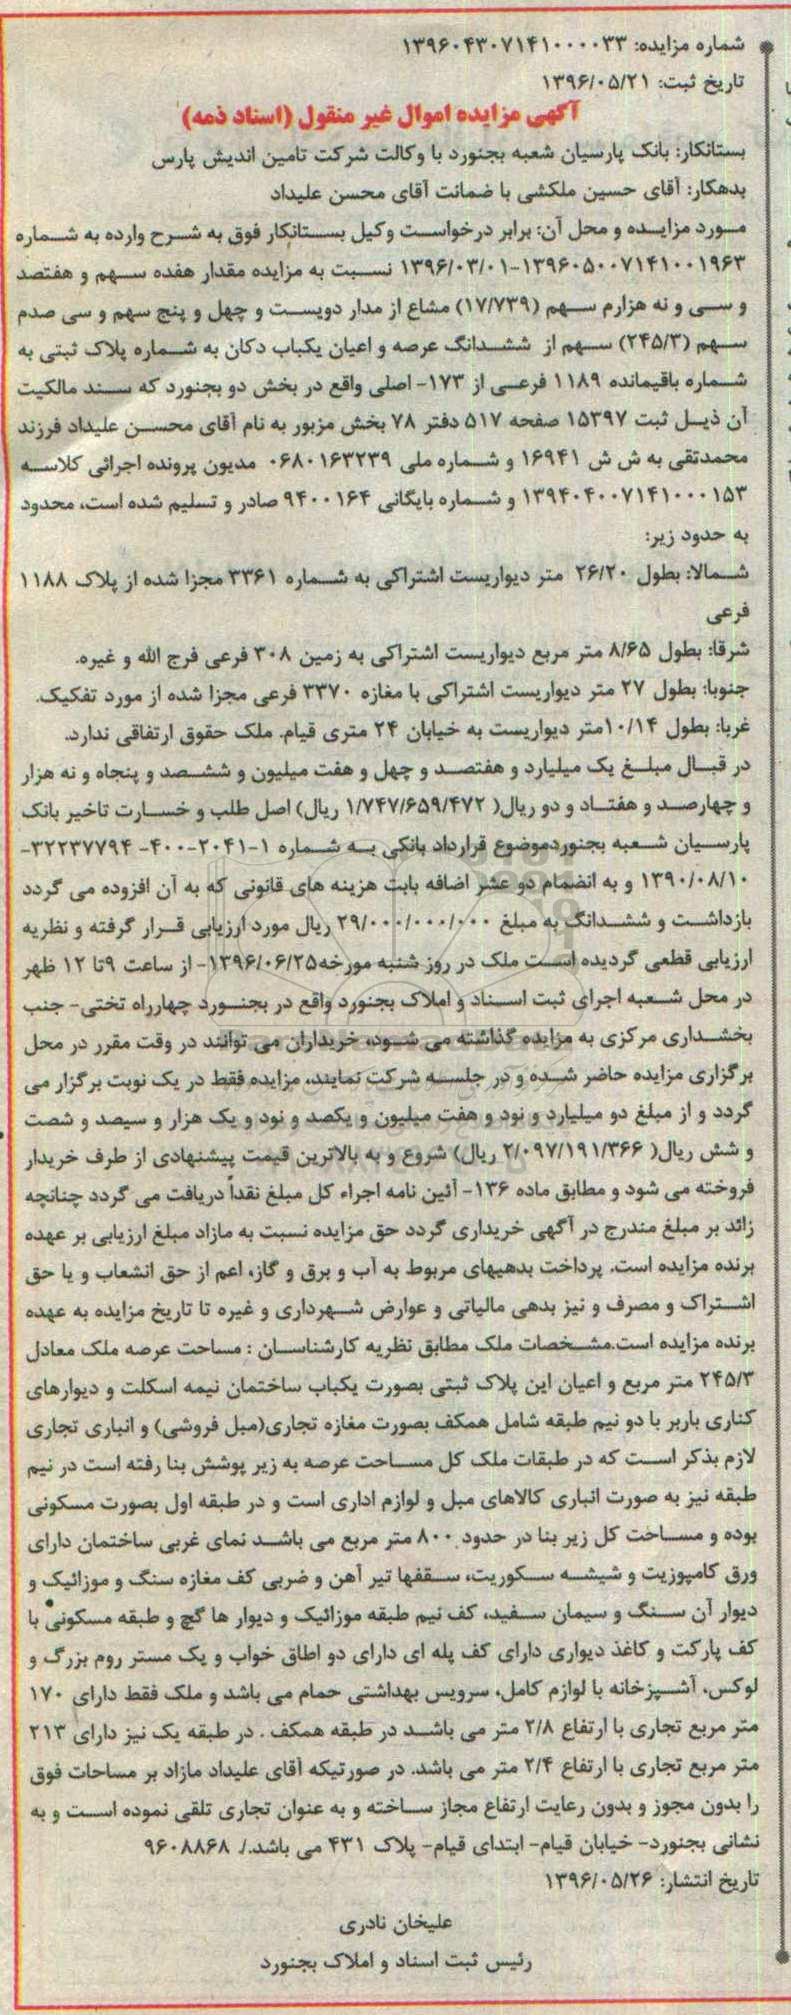 شماره مزایده: ۱۳۹۶۰۴۳۰۷۱۴۱۰۰۰۰۳۳
تاریخ ثبت: ۱۳۹۶/۰۵/۲۱
آگهی مزایده اموال غیر منقول (اسناد ذمه)
بستانکار: بانک پارسیان شعبه بجنورد با وکالت شرکت تامین اندیش پارس
بدهکار: آقای حسین ملکشی با ضمانت آقای محسن علیداد
مورد مزایده و محل آن: برابر درخواست وکیل بستانکار فوق به شرح وارده به شماره
۱۳۹۶۰۵۰۰۷۱۴۱۰۰۱۹۶۳-۱۳۹۶/۰۳/۰۱ نسبت به مزایده مقدار هفده سهم و هفتصد
و سی و نه هزارم سهم (۱۷/۷۳۹) مشاع از مدار دویست و چهل و پنج سهم و سی صدم
سهم (۲۴۵/۳) سهم از ششدانگ عرصه و اعیان یکباب دکان به شماره پلاک ثبتی به
شماره باقیمانده ۱۱۸۹ فرعی از ۱۷۳- اصلی واقع در بخش دو بجنورد که سند مالکیت
آن ذیل ثبت ۱۵۳۹۷ صفحه ۵۱۷ دفتر ۷۸ بخش مزبور به نام آقای محسن علیداد فرزند
محمدتقی به ش ش ۱۶۹۴۱ و شماره ملی ۰۶۸۰۱۶۳۲۳۹ مدیون پرونده اجرائی کلاسه
۱۳۹۴۰۴۰۰۷۱۴۱۰۰۰۱۵۳ و شماره بایگانی ۹۴۰۰۱۶۴ صادر و تسلیم شده است، محدود
به حدود زیر:
شمالا: بطول ۲۶/۲۰ متر دیواریست اشتراکی به شماره ۳۳۶۱ مجزا شده از پلاک ۱۱۸۸
فرعی
شرقا: بطول ۸/۶۵ متر مربع دیواریست اشتراکی به زمین ۳۰۸ فرعی فرج الله و غیره.
جنوبا: بطول ۲۷ متر دیواریست اشتراکی با مغازه ۳۳۷۰ فرعی مجزا شده از مورد تفکیک.
غربا: بطول ۱۰/۱۴متر دیواریست به خیابان ۲۴ متری قیام. ملک حقوق ارتفاقی ندارد.
در قبال مبلغ یک میلیارد و هفتصد و چهل و هفت میلیون و ششصد و پنجاه و نه هزار
و چهارصد و هفتاد و دو ریال( ۱/۷۴۷/۶۵۹/۴۷۲ ریال) اصل طلب و خسارت تاخیر بانک
پارسیان شعبه بجنوردموضوع قرارداد بانکی به شماره ۱-۲۰۴۱-۴۰۰- ۳۲۲۳۷۷۹۴-
۱۳۹۰/۰۸/۱۰ و به انضمام دو عشر اضافه بابت هزینه های قانونی که به آن افزوده می گردد
بازداشت و ششدانگ به مبلغ ۲۹/۰۰۰/۰۰۰/۰۰۰ ریال مورد ارزیابی قرار گرفته و نظریه
ارزیابی قطعی گردیده است ملک در روز شنبه مورخه۱۳۹۶/۰۶/۲۵- از ساعت ۹تا ۱۲ ظهر
در محل شعبه اجرای ثبت اسناد و املاک بجنورد واقع در بجنورد چهارراه تختی- جنب
بخشداری مرکزی به مزایده گذاشته می شود، خریداران می توانند در وقت مقرر در محل
برگزاری مزایده حاضر شده و در جلسه شرکت نمایند، مزایده فقط در یک نوبت برگزار می
گردد و از مبلغ دو میلیارد و نود و هفت میلیون و یکصد و نود و یک هزار و سیصد و شصت
و شش ریال( ۲/۰۹۷/۱۹۱/۳۶۶ ریال) شروع و به بالاترین قیمت پیشنهادی از طرف خریدار
فروخته می شود و مطابق ماده ۱۳۶- آئین نامه اجراء کل مبلغ نقداً دریافت می گردد چنانچه
زائد بر مبلغ مندرج در آگهی خریداری گردد حق مزایده نسبت به مازاد مبلغ ارزیابی بر عهده
برنده مزایده است. پرداخت بدهیهای مربوط به آب و برق و گاز، اعم از حق انشعاب و یا حق
اشتراک و مصرف و نیز بدهی مالیاتی و عوارض شهرداری و غیره تا تاریخ مزایده به عهده
برنده مزایده است.مشخصات ملک مطابق نظریه کارشناسان : مساحت عرصه ملک معادل
۲۴۵/۳ متر مربع و اعیان این پلاک ثبتی بصورت یکباب ساختمان نیمه اسکلت و دیوارهای
کناری باربر با دو نیم طبقه شامل همکف بصورت مغازه تجاری(مبل فروشی) و انباری تجاری
لازم بذکر است که در طبقات ملک کل مساحت عرصه به زیر پوشش بنا رفته است در نیم
طبقه نیز به صورت انباری کالاهای مبل و لوازم اداری است و در طبقه اول بصورت مسکونی
بوده و مساحت کل زیر بنا در حدود ۸۰۰ متر مربع می باشد نمای غربی ساختمان دارای
ورق کامپوزیت و شیشه سکوریت، سقفها تیر آهن و ضربی کف مغازه سنگ و موزائیک و
دیوار آن سنگ و سیمان سفید، کف نیم طبقه موزائیک و دیوار ها گچ و طبقه مسکونی با
کف پارکت و کاغذ دیواری دارای کف پله ای دارای دو اطاق خواب و یک مستر روم بزرگ و
لوکس، آشپزخانه با لوازم کامل، سرویس بهداشتی حمام می باشد و ملک فقط دارای ۱۷۰
متر مربع تجاری با ارتفاع ۲/۸ متر می باشد در طبقه همکف . در طبقه یک نیز دارای ۲۱۳
متر مربع تجاری با ارتفاع ۲/۴ متر می باشد. در صورتیکه آقای علیداد مازاد بر مساحات فوق
را بدون مجوز و بدون رعایت ارتفاع مجاز ساخته و به عنوان تجاری تلقی نموده است و به
نشانی بجنورد- خیابان قیام- ابتدای قیام- پلاک ۴۳۱ می باشد./. ۹۶۰۸۸۶۸
تاریخ انتشار: ۱۳۹۶/۰۵/۲۶
علیخان نادری
رئیس ثبت اسناد و املاک بجنورد